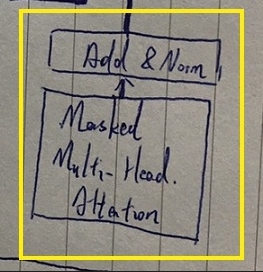 Add & Norm
Masked
Multi-Head.
Attention